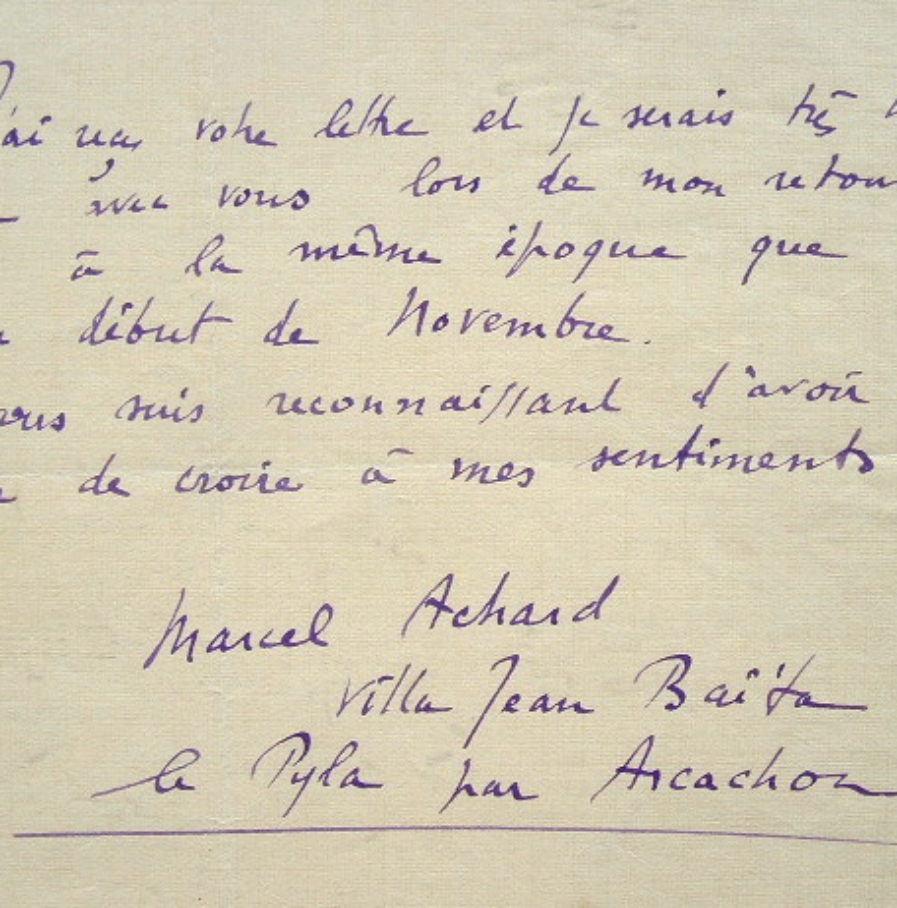 J'ai reçu votre lettre et je serais très
avec vous lors de mon retour
à la même époque que
début de Novembre.
vous suis reconnaissant d'avoir
de croire à mes sentiments
Marcel Achard
Villa Jean Baïta
le Pyla par Arcachon